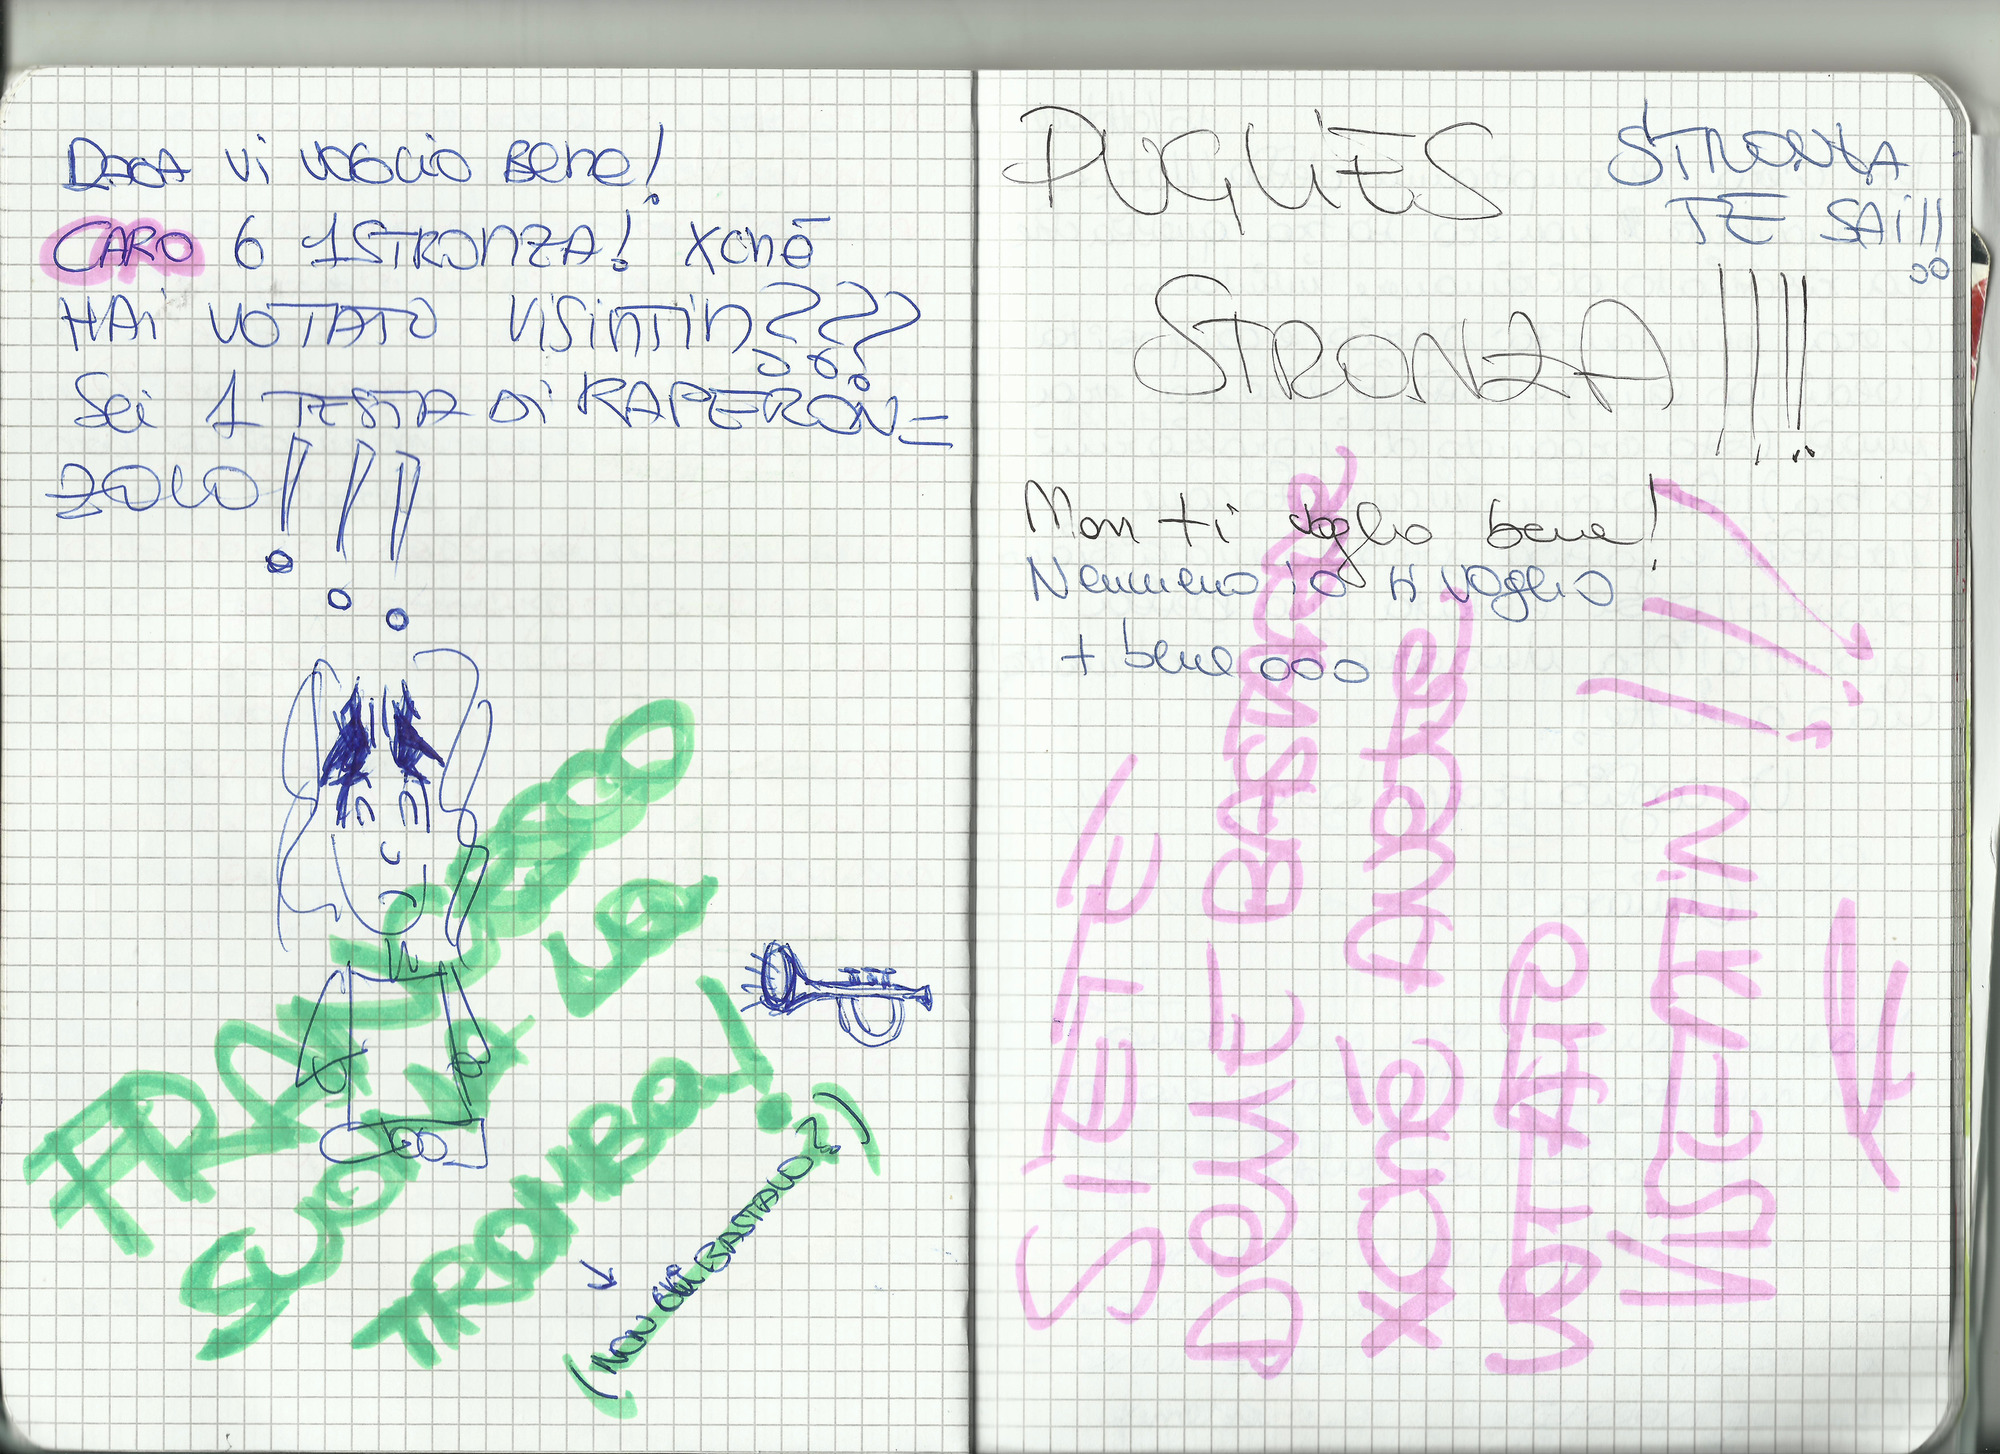 VI VOGLIO BENE!
CARO 6 1 STRONZA! XCHÉ
HAI VOTATO VISINTIN???
SEI 1 TESTA DI RAPERON=
ZOLO!!!
FRANCESCO
SUONA LA
TROMBA!
(NON CHI BASTAVO??)
PUGLIES
STRONZA
TE SAI!!
STRONZA!!!!
Non ti voglio bene!
Nemmeno io ti voglio
+ bene ooo
SIETE
DONNE BASTARDE
XCHÉ AVETE
VOTATO
VISENTIN